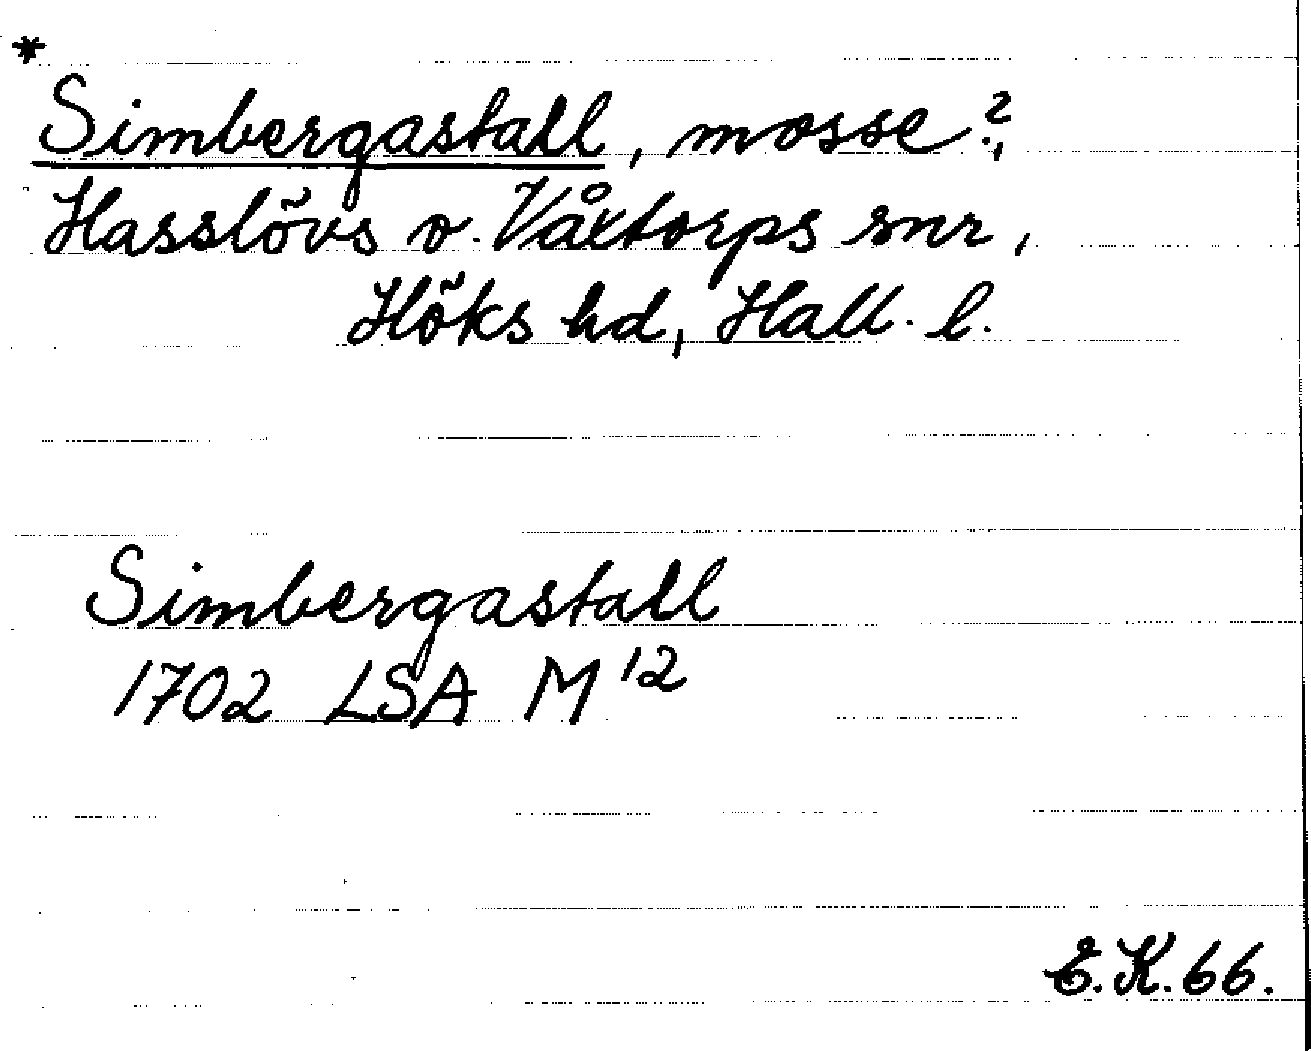 *
Simbergastall, mosse?,
Hasslövs o. Våxtorps snr,
Höks hd, Hall. l.
Simbergastall
1702 LSA M 12
E.K. 66.